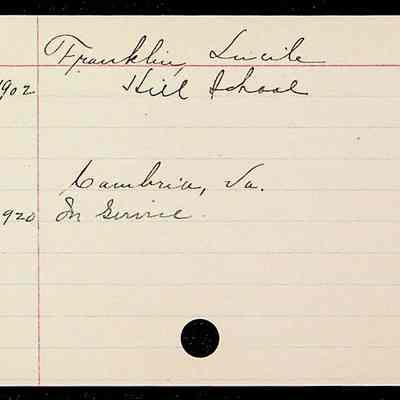 Franklin, Lucile
1902 Hill School
Cambria, Va.
1920 In Service